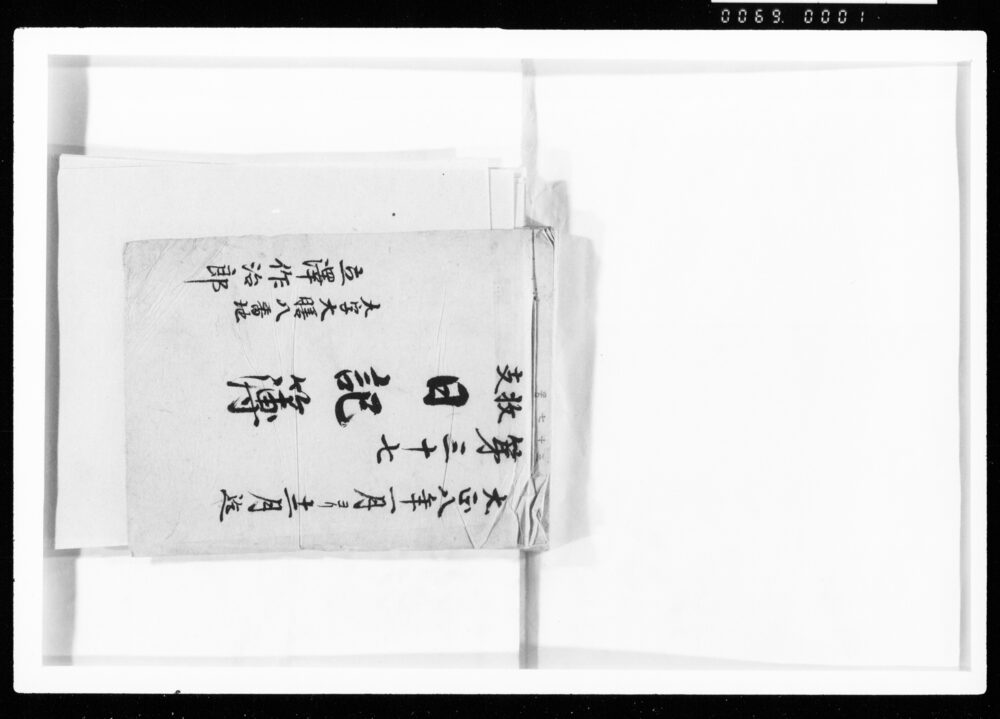 0069. 0001
大正八年一月ヨリ十二月迄
第三十七
收支
日記簿
大字大膳八番地
澤作治郎